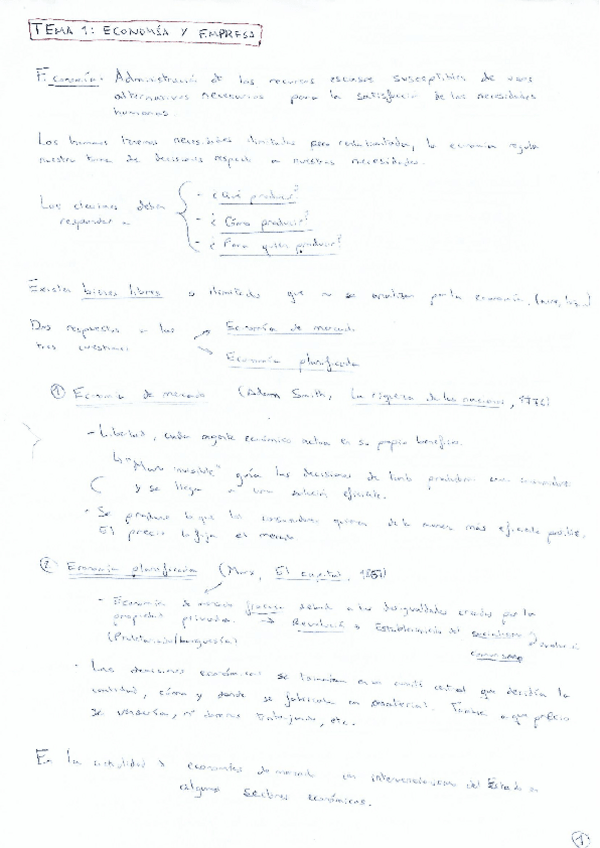 TEMA 1: ECONOMÍA Y EMPRESA
Economía: Administración de los recursos escasos susceptibles de usos
alternativos necesarios para la satisfacción de las necesidades
humanas.
Los humanos tienen necesidades ilimitadas pero la economía regula
nuestra toma de decisiones respecto a nuestras necesidades.
deben
responder a
- ¿Qué producir?
- ¿Cómo producir?
- ¿Para quién producir?
Existen bienes libres o ilimitados que no se analizan por la economía.
Dos respuestas a las
tres cuestiones
Economía de mercado
Economía planificada
① Economía de mercado (Adam Smith, La riqueza de las naciones, 1776)
- Libertad, cada agente económico actúa en su propio beneficio.
"Mano invisible" guía las decisiones de tanto productores como consumidores
y se llega a una solución eficiente.
- Se produce lo que los consumidores quieren de la manera más eficiente posible.
El precio lo fija el mercado.
② Economía planificada (Marx, El capital,
- Economía de mercado fracasa debido a las desigualdades creadas por la
propiedad privada. → Revolución Establecimiento del socialismo
(Proletariado/burguesía) comunismo
- Las decisiones económicas se tomarían en un comité central que decidiría la
cantidad, cómo y donde se fabricaría También a que precio
se vendería, nº de horas trabajadas, etc.
En la actualidad economías de mercado con intervencionismo del Estado en
algunos sectores económicos.
1